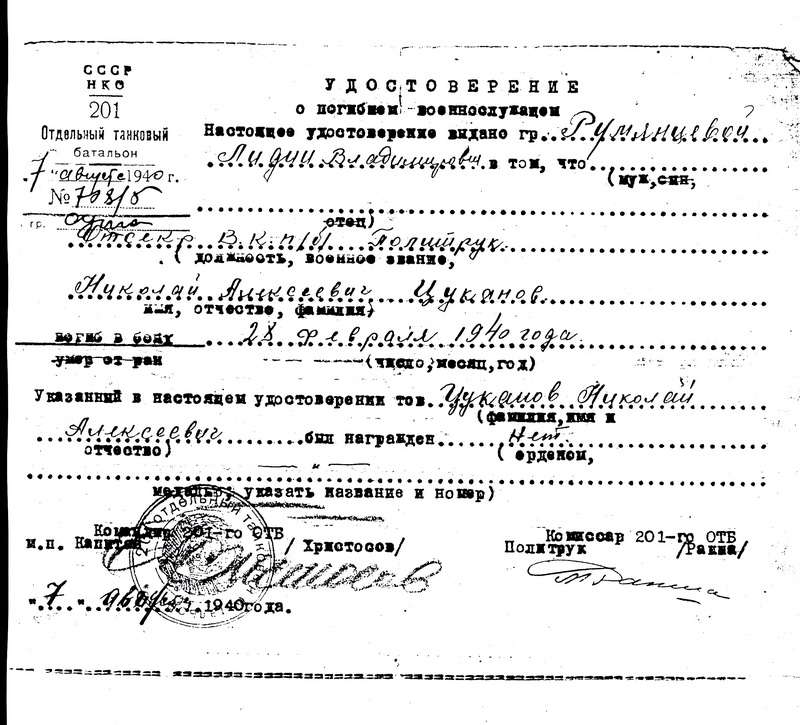 СССР
НКО
201
Отдельный танковый
батальон
7 "августа 1940 г.
№ 708/б
гр.
УДОСТОВЕРЕНИЕ
о погибшем военнослужащем
Настоящее удостоверение выдано гр. Румянцевой
Лидии Владимировне в том, что
(муж, сын,
отец)
Отсекр В.К.П/б/ Политрук
(должность, военное звание,
Николай Алексеевич Цуканов
имя, отчество, фамилия)
погиб в бою 28 февраля 1940 года
умер от ран (число, месяц, год)
Указанный в настоящем удостоверении тов. Цуканов Николай
(фамилия, имя и
Алексеевич был награжден Нет.
отчество) (орденом,
— " —
медалью, указать название и номер)
Командир 201-го ОТБ
м.п. Капитан /Христосов/
"7" августа 1940 года.
Комиссар 201-го ОТБ
Политрук /Ракша/